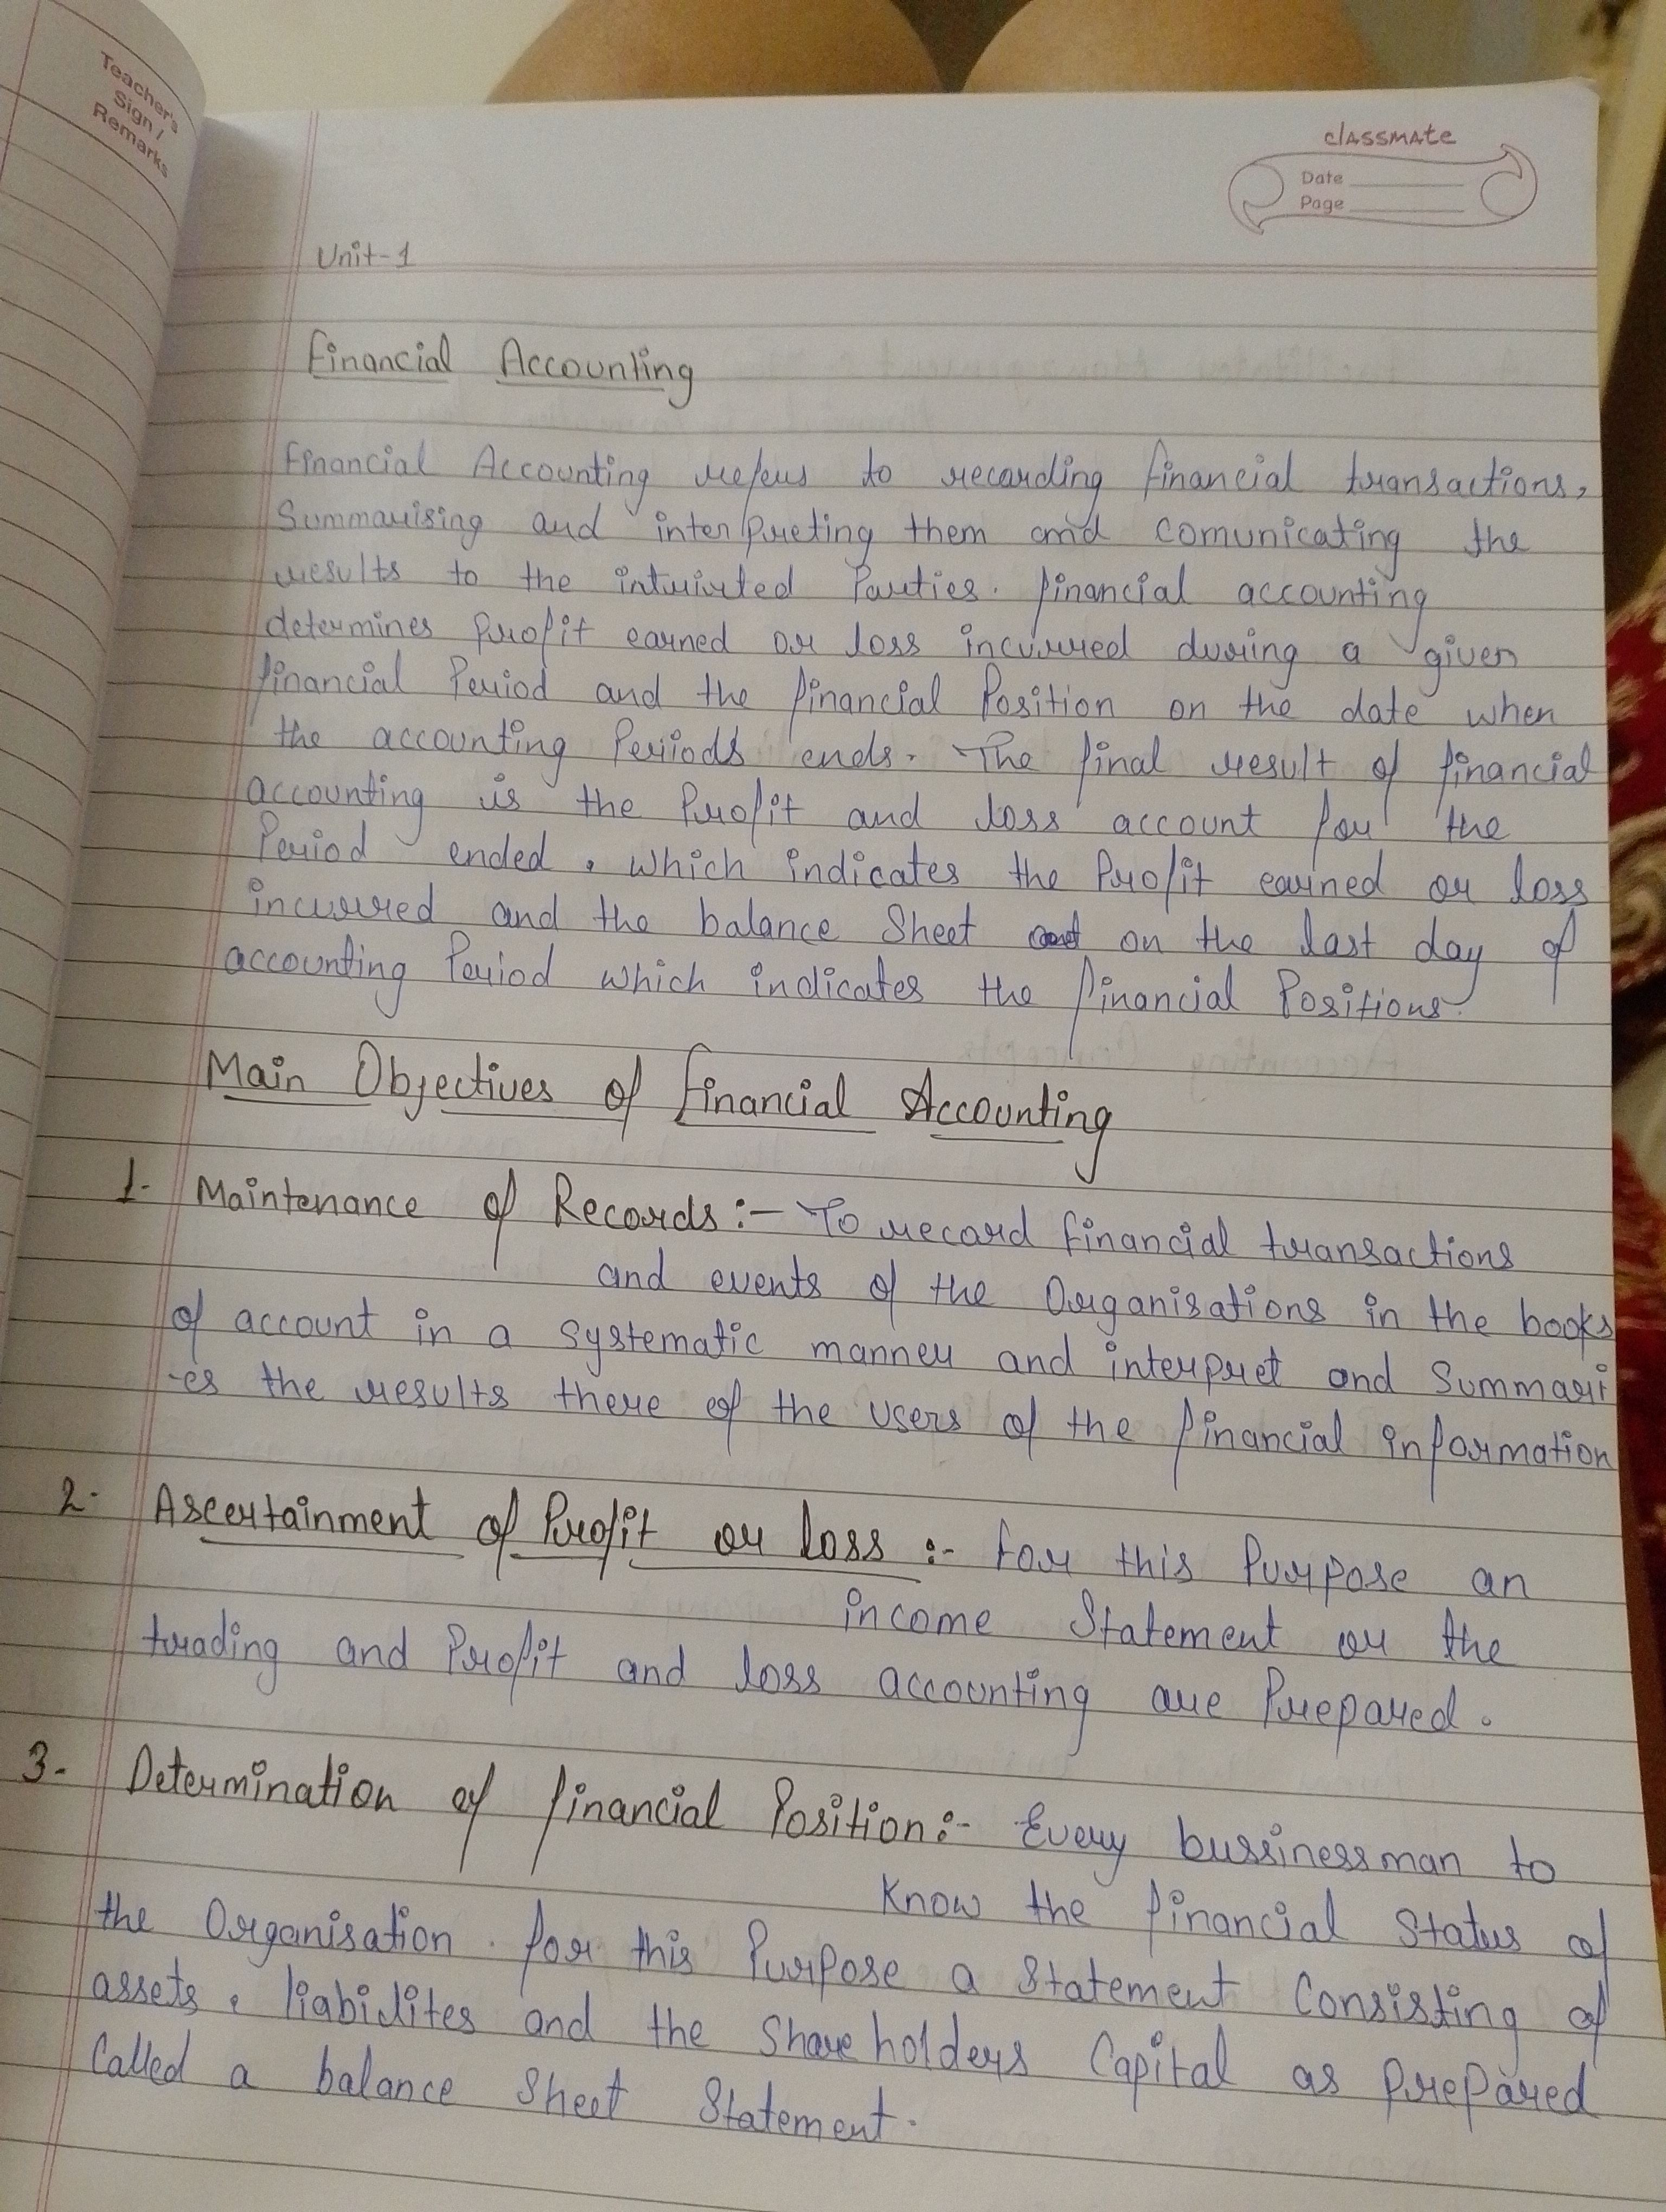 Teacher's
Sign /
Remarks
classmate
Date
Page
Unit-1
Financial Accounting
Financial Accounting refers to recording financial transactions,
Summarising and interpreting them and comunicating the
results to the Parties. financial accounting
determines Profit earned or loss incurred during a given
financial Period and the financial Position on the date when
the accounting Periods ends. The final result of financial
accounting is the Profit and loss account for the
Period ended, which indicates the Profit earned or loss
incurred and the balance Sheet on the last day of
accounting Period which indicates the financial Positions.
Main Objectives of Financial Accounting
1- Maintenance of Records:- To record financial transactions
and events of the Organisations in the books
of account in a systematic manner and interpret and Summari
-es the results there of the users of the financial information
2- Ascertainment of Profit or loss :- For this Purpose an
income Statement or the
trading and Profit and loss accounting are Prepared.
3- Determination of financial Position:- Every bussinessman to
Know the financial Status of
the Organisation. for this Purpose a Statement Consisting of
assets, liabilites and the Shareholders Capital as prepared
Called a balance Sheet Statement.